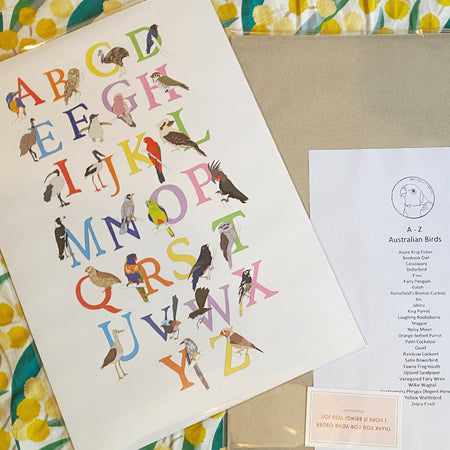 A B C D
E F G H
I J K L
M N O P
Q R S T
U V W X
Y Z
A - Z
Australian Birds
Azure King Fisher
Boobook Owl
Cassowary
Dollarbird
Emu
Fairy Penguin
Galah
Horsfield's Bronze-Cuckoo
Ibis
Jabiru
King Parrot
Laughing Kookaburra
Magpie
Noisy Miner
Orange-bellied Parrot
Palm Cockatoo
Quail
Rainbow Lorikeet
Satin Bowerbird
Tawny Frogmouth
Upland Sandpiper
Variegated Fairy Wren
Willie Wagtail
Phrygia (Regent Honey
Yellow Wattlebird
Zebra Finch
THANK YOU FOR YOUR ORDER
I HOPE IT BRINGS YOU JOY